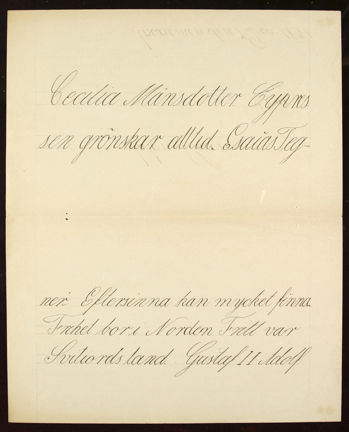 Cecilia Månsdotter Cypres
sen grönskar alltid. Esaias Teg-
nér. Eftersinna kan mycket finna
Frihet bor i Norden Fritt var
Svitiods land. Gustaf II Adolf